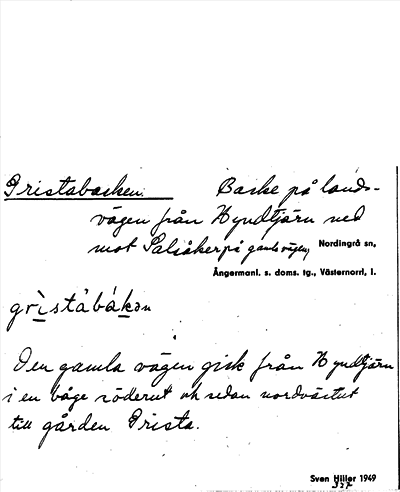 Gristabacken. Backe på lands-
vägen från Hyndtjärn ned
mot Salsåker på gamla vägen, Nordingrå sn,
Ångermanl. s. doms. tg., Västernorrl. l.
grìstabákən
Den gamla vägen gick från Hyndtjärn
i en båge söderut och sedan nordvästut
till gården Grista.
Sven Hiller 1949